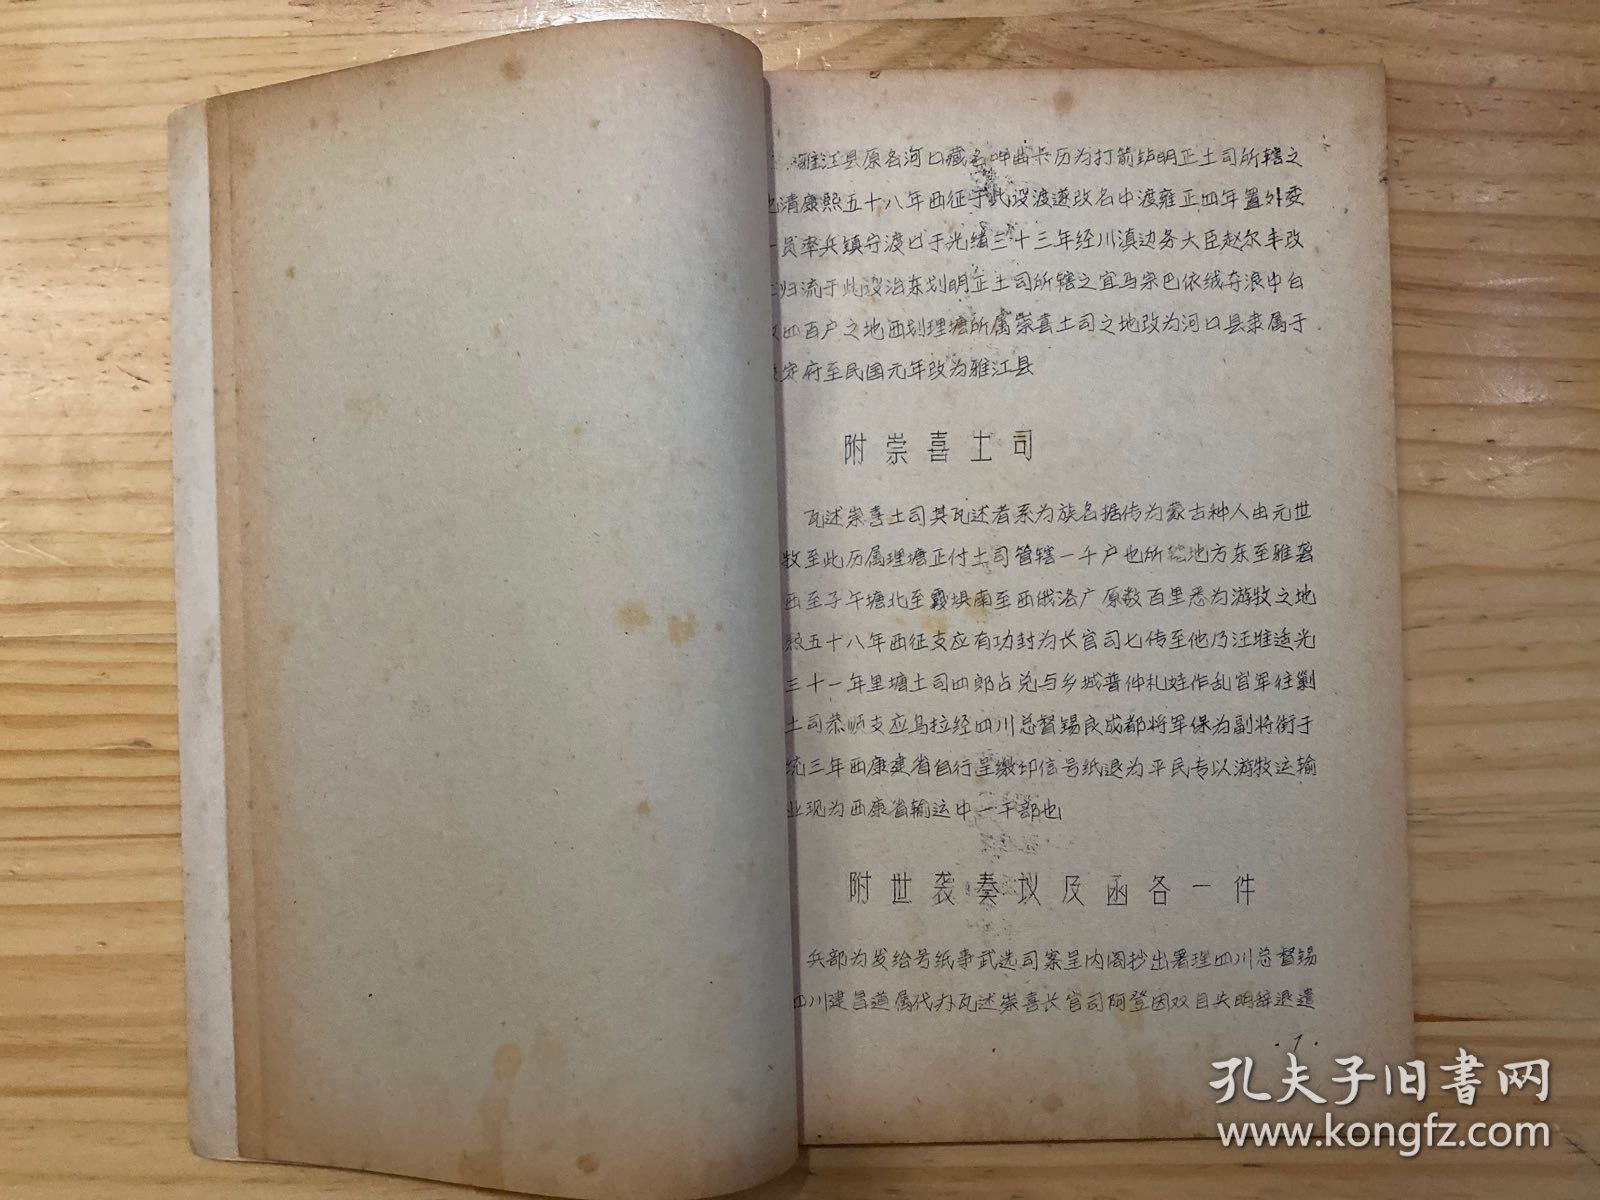 雅江县原名河口藏名呷曲卡历为打箭炉明正土司所辖之
清康熙五十八年西征于此设渡遂改名中渡雍正四年置外委
一员率兵镇守渡口于光绪三十三年经川滇边务大臣赵尔丰改
归流于此设治东划明正土司所辖之宜马宗巴依绒夺浪中白
四百户之地西划理塘所属崇喜土司之地改为河口县隶属于
定府至民国元年改为雅江县
附崇喜土司
瓦述崇喜土司其瓦述者系为族名据传为蒙古种人由元世
牧至此历属理塘正付土司管辖一千户也所辖地方东至雅砻
西至子午塘北至霞坝南至西俄洛广原数百里悉为游牧之地
熙五十八年西征支应有功封为长官司七传至他乃汪堆适光
三十一年里塘土司四郎占兑与乡城普仲札娃作乱官军往剿
土司恭顺支应乌拉经四川总督锡良成都将军保为副将衔于
统三年西康建省自行呈缴印信号纸退为平民专以游牧运输
业现为西康省输运中一干部也
附世袭奏议及函各一件
兵部为发给号纸事武选司案呈内阁抄出署理四川总督锡
四川建昌道属代办瓦述崇喜长官司阿登因双目失明辞退遗
·1·
孔夫子旧书网
www.kongfz.com